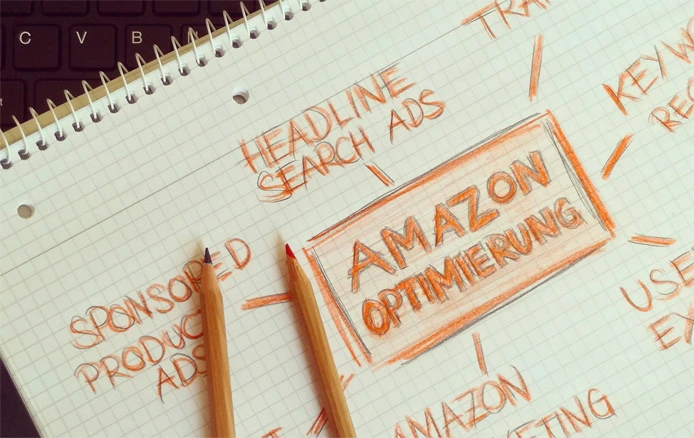 C V B
TRA
HEADLINE
SEARCH ADS
KEYW
AMAZON
OPTIMIERUNG
SPONSORED
PRODUCT
ADS
USE
EX
AMAZON
KETING